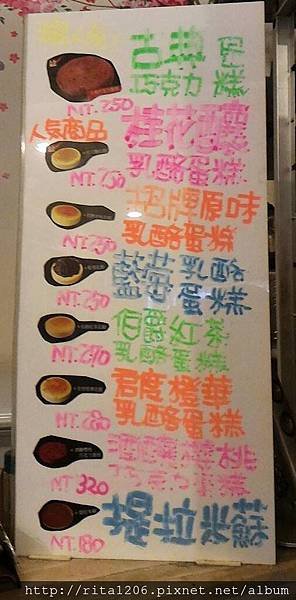 古典巧克力
NT.250
桂花釀
人氣商品
乳酪蛋糕
NT.250
招牌原味
乳酪蛋糕
NT.250
藍莓乳酪
蛋糕
NT.250
伯爵紅茶
乳酪蛋糕
NT.270
君度橙華
乳酪蛋糕
NT.280
酒釀櫻桃
巧克力蛋糕
NT 320
提拉米蘇
NT.180
http://rita1206.pixnet.net/album